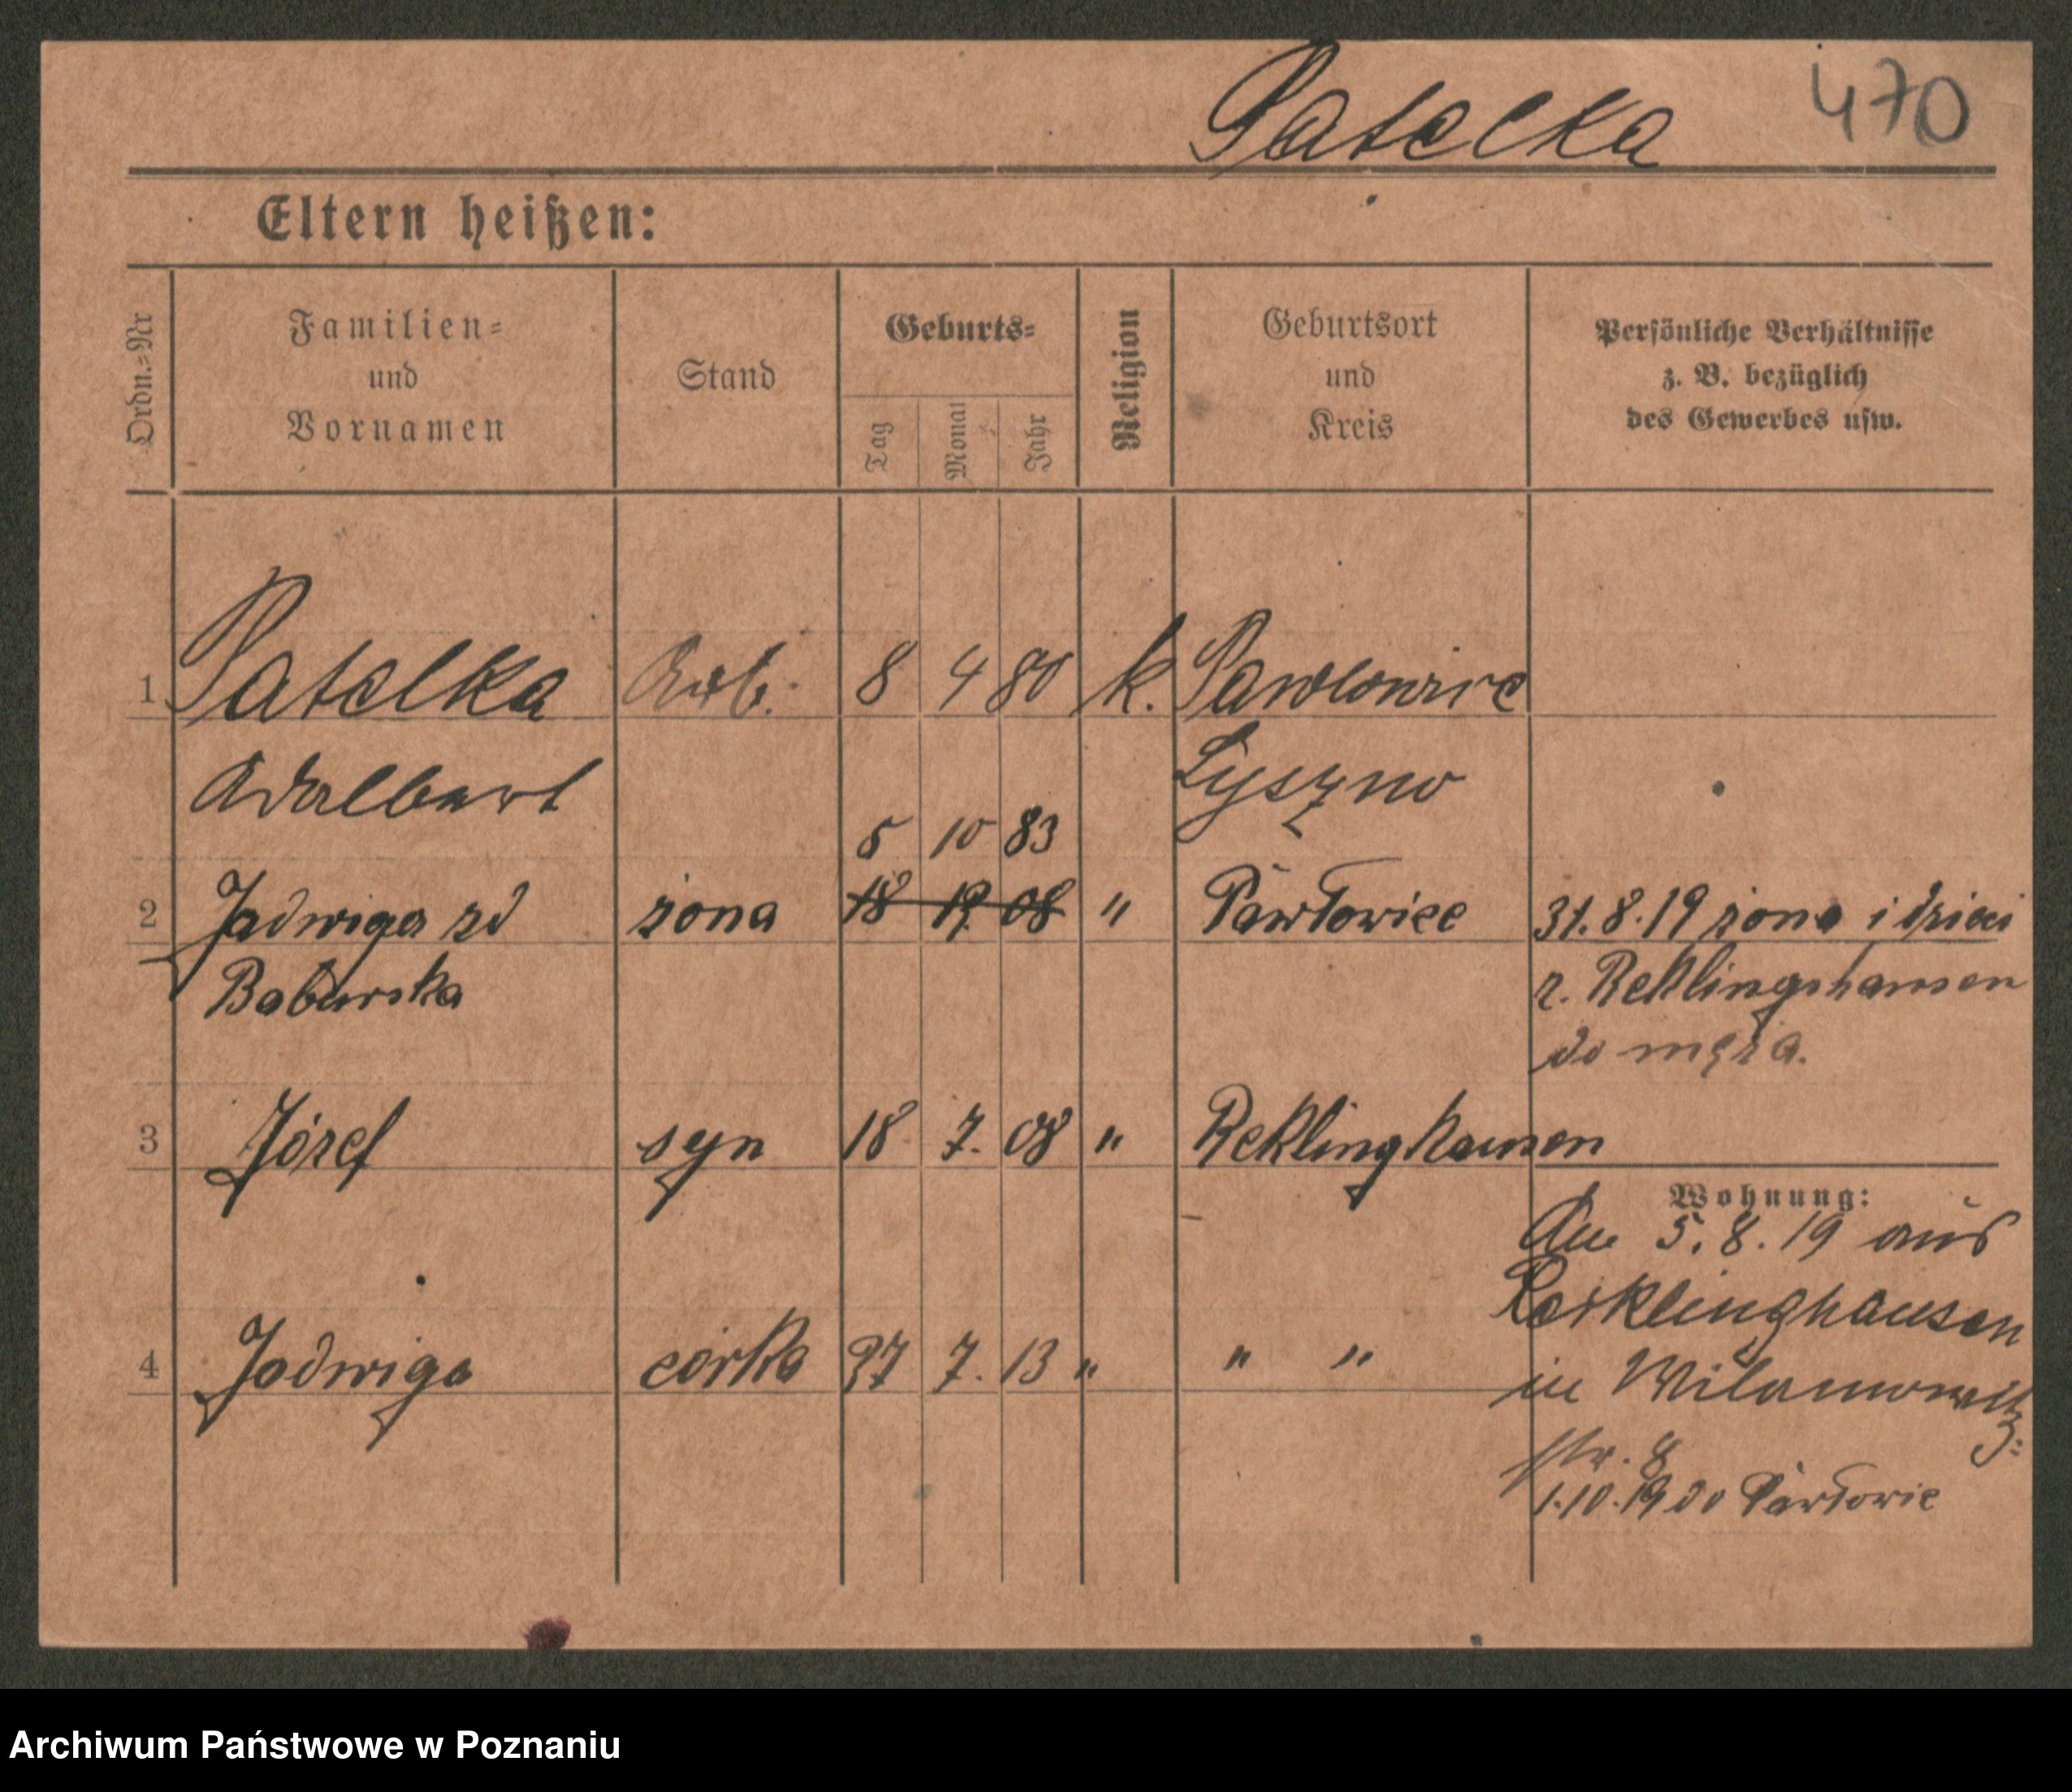 470
Patelka
Eltern heißen:
Ordn.=Nr
Familien=
und
Vornamen
Stand
Geburts=
Tag
Monat
Jahr
Religion
Geburtsort
und
Kreis
Persönliche Verhältnisse
z. B. bezüglich
des Gewerbes usw.
1 Patelka Arb. 8 4 80 k. Pawlowice
Adalbert Lyszno
5 10 83
2 Jadwiga zd żona 18 12. 08 " Pawłowice 31.8.19 żona i dzieci
Baburska z. Reklingshausen
do męża.
3 Józef syn 18 7. 08 " Reklinghausen
Wohnung:
An 5.8.19 aus
Recklinghausen
4 Jadwiga córka 27 7. 13 " " "
in Wilamowitz=
str. 8
1.10.19 do Pawłowic
Archiwum Państwowe w Poznaniu